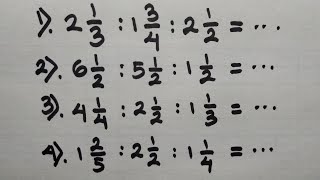 1). 2 1/3 : 1 3/4 : 2 1/2 = ...
2). 6 1/2 : 5 1/2 : 1 1/2 = ...
3). 4 1/4 : 2 1/2 : 1 1/3 = ...
4). 1 2/5 : 2 1/2 : 1 1/4 = ...